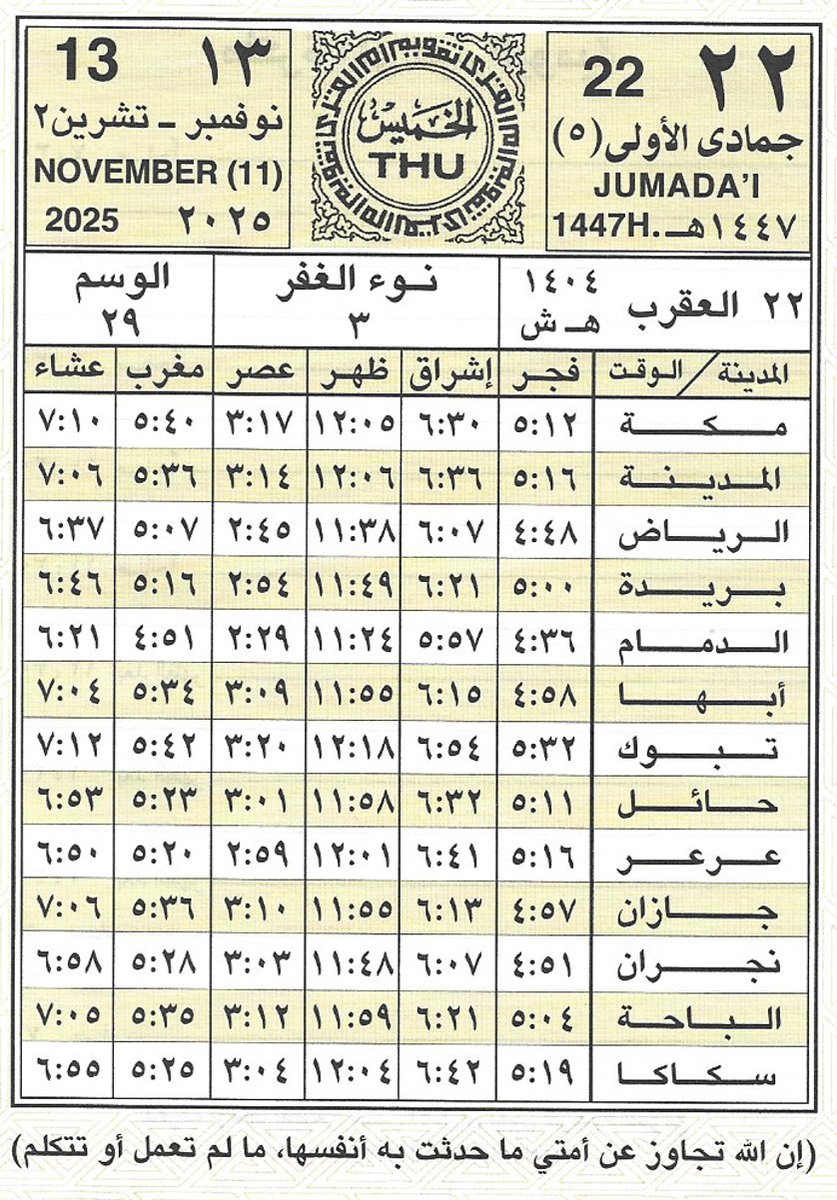 ٢٢ 22
جمادى الأولى (٥)
JUMADA'I
١٤٤٧هـ. 1447H.
تقويم أم القرى
الخميس
THU
١٣ 13
نوفمبر ـ تشرين٢
NOVEMBER (11)
2025 ٢٠٢٥
٢٢ العقرب ١٤٠٤ هـ ش
نوء الغفر ٣
الوسم ٢٩
المدينة / الوقت فجر إشراق ظهر عصر مغرب عشاء
مكة ٥:١٢ ٦:٣٠ ١٢:٠٥ ٣:١٧ ٥:٤٠ ٧:١٠
المدينة ٥:١٦ ٦:٣٦ ١٢:٠٦ ٣:١٤ ٥:٣٦ ٧:٠٦
الرياض ٤:٤٨ ٦:٠٧ ١١:٣٨ ٢:٤٥ ٥:٠٧ ٦:٣٧
بريدة ٥:٠٠ ٦:٢١ ١١:٤٩ ٢:٥٤ ٥:١٦ ٦:٤٦
الدمام ٤:٣٦ ٥:٥٧ ١١:٢٤ ٢:٢٩ ٤:٥١ ٦:٢١
أبها ٤:٥٨ ٦:١٥ ١١:٥٥ ٣:٠٩ ٥:٣٤ ٧:٠٤
تبوك ٥:٣٢ ٦:٥٤ ١٢:١٨ ٣:٢٠ ٥:٤٢ ٧:١٢
حائل ٥:١١ ٦:٣٢ ١١:٥٨ ٣:٠١ ٥:٢٣ ٦:٥٣
عرعر ٥:١٦ ٦:٤١ ١٢:٠١ ٢:٥٩ ٥:٢٠ ٦:٥٠
جازان ٤:٥٧ ٦:١٣ ١١:٥٥ ٣:١٠ ٥:٣٦ ٧:٠٦
نجران ٤:٥١ ٦:٠٧ ١١:٤٨ ٣:٠٣ ٥:٢٨ ٦:٥٨
الباحة ٥:٠٤ ٦:٢١ ١١:٥٩ ٣:١٢ ٥:٣٥ ٧:٠٥
سكاكا ٥:١٩ ٦:٤٢ ١٢:٠٤ ٣:٠٤ ٥:٢٥ ٦:٥٥
(إن الله تجاوز عن أمتي ما حدثت به أنفسها، ما لم تعمل أو تتكلم)